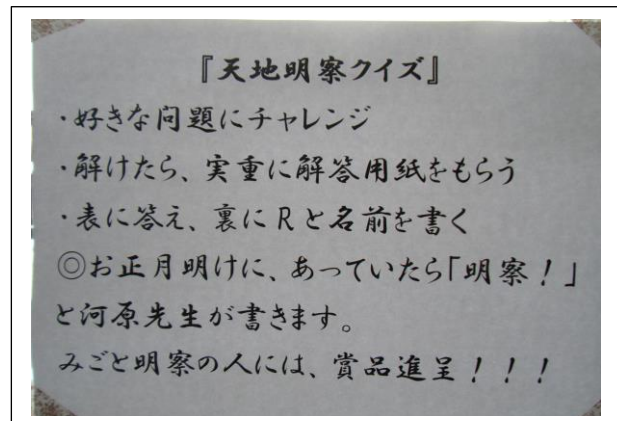 『天地明察クイズ』
・好きな問題にチャレンジ
・解けたら、実重に解答用紙をもらう
・表に答え、裏にRと名前を書く
◎お正月明けに、あっていたら「明察！」
と河原先生が書きます。
みごと明察の人には、賞品進呈！！！